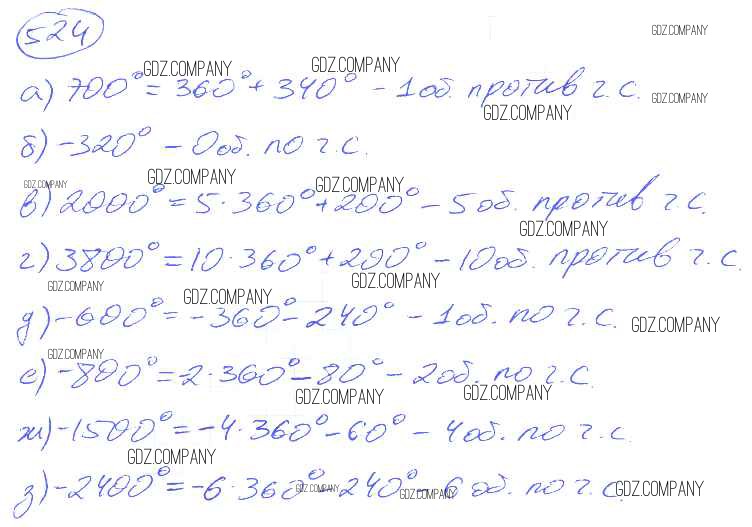 524
GDZ.COMPANY
GDZ.COMPANY GDZ.COMPANY
а) 700° = 360° + 340° - 1 об. против ч.с. GDZ.COMPANY
GDZ.COMPANY
б) -320° - 0 об. по ч.с.
GDZ.COMPANY GDZ.COMPANY GDZ.COMPANY
в) 2000° = 5·360° + 200° - 5 об. против ч.с.
GDZ.COMPANY
г) 3800° = 10·360° + 200° - 10 об. против ч.с.
GDZ.COMPANY GDZ.COMPANY GDZ.COMPANY
д) -600° = -360° - 240° - 1 об. по ч.с. GDZ.COMPANY
GDZ.COMPANY
е) -800° = -2·360° - 80° - 2 об. по ч.с.
GDZ.COMPANY GDZ.COMPANY
ж) -1500° = -4·360° - 60° - 4 об. по ч.с.
GDZ.COMPANY
з) -2400° = -6·360° - 240° - 6 об. по ч.с. GDZ.COMPANY
GDZ.COMPANY GDZ.COMPANY